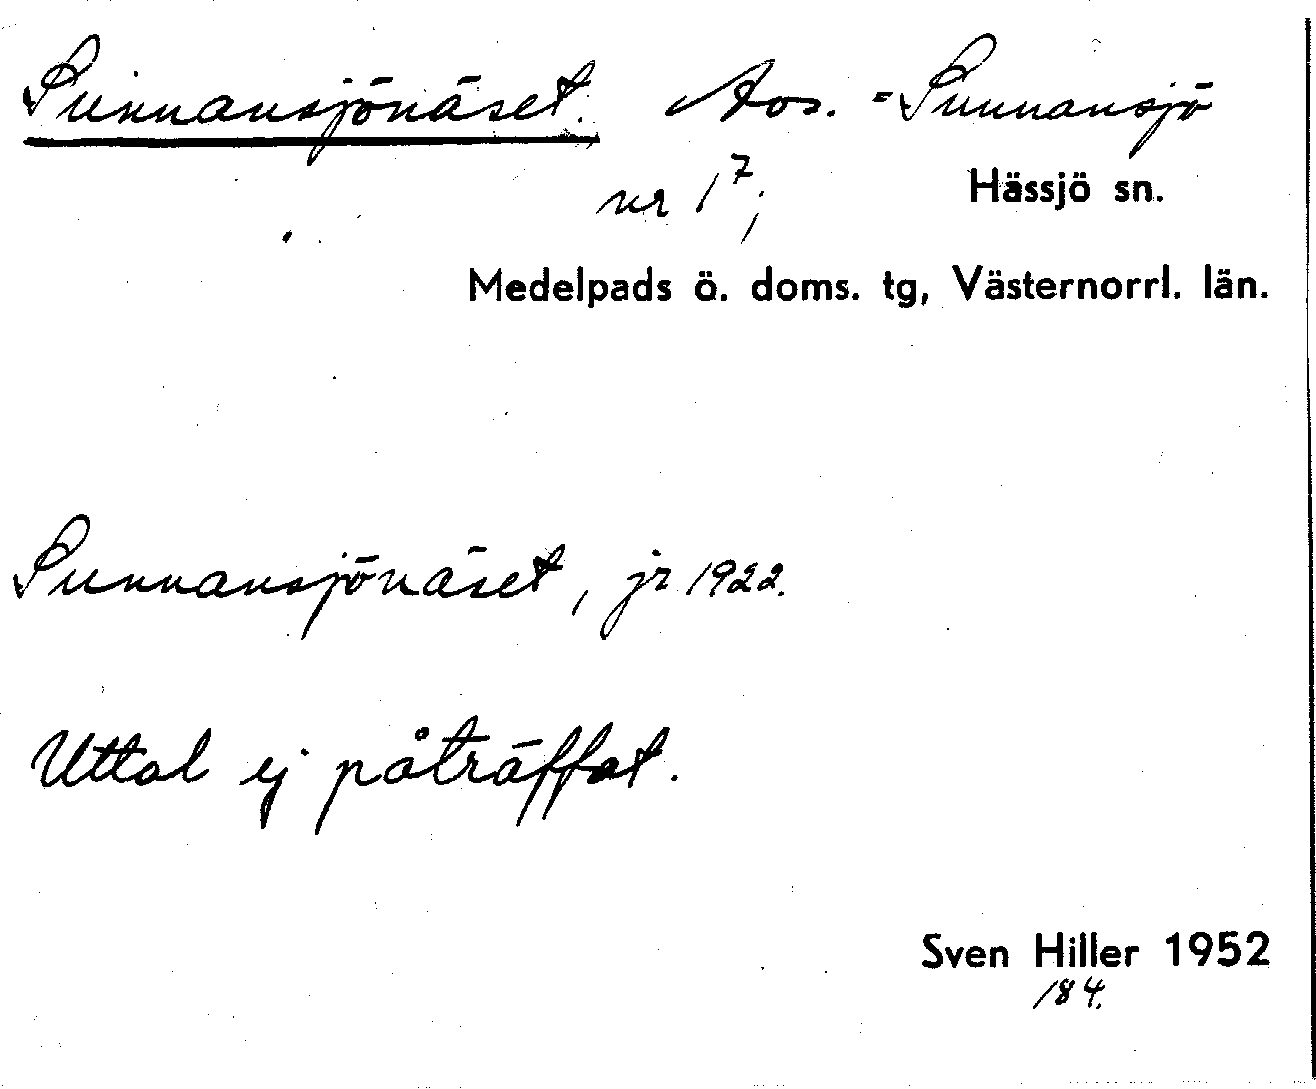 Sunnansjönäset. Avs. = Sunnansjö
nr 1⁷;
Hässjö sn.
Medelpads ö. doms. tg, Västernorrl. län.
Sunnansjönäset, jr 1922.
Uttal ej påträffat.
Sven Hiller 1952
184.